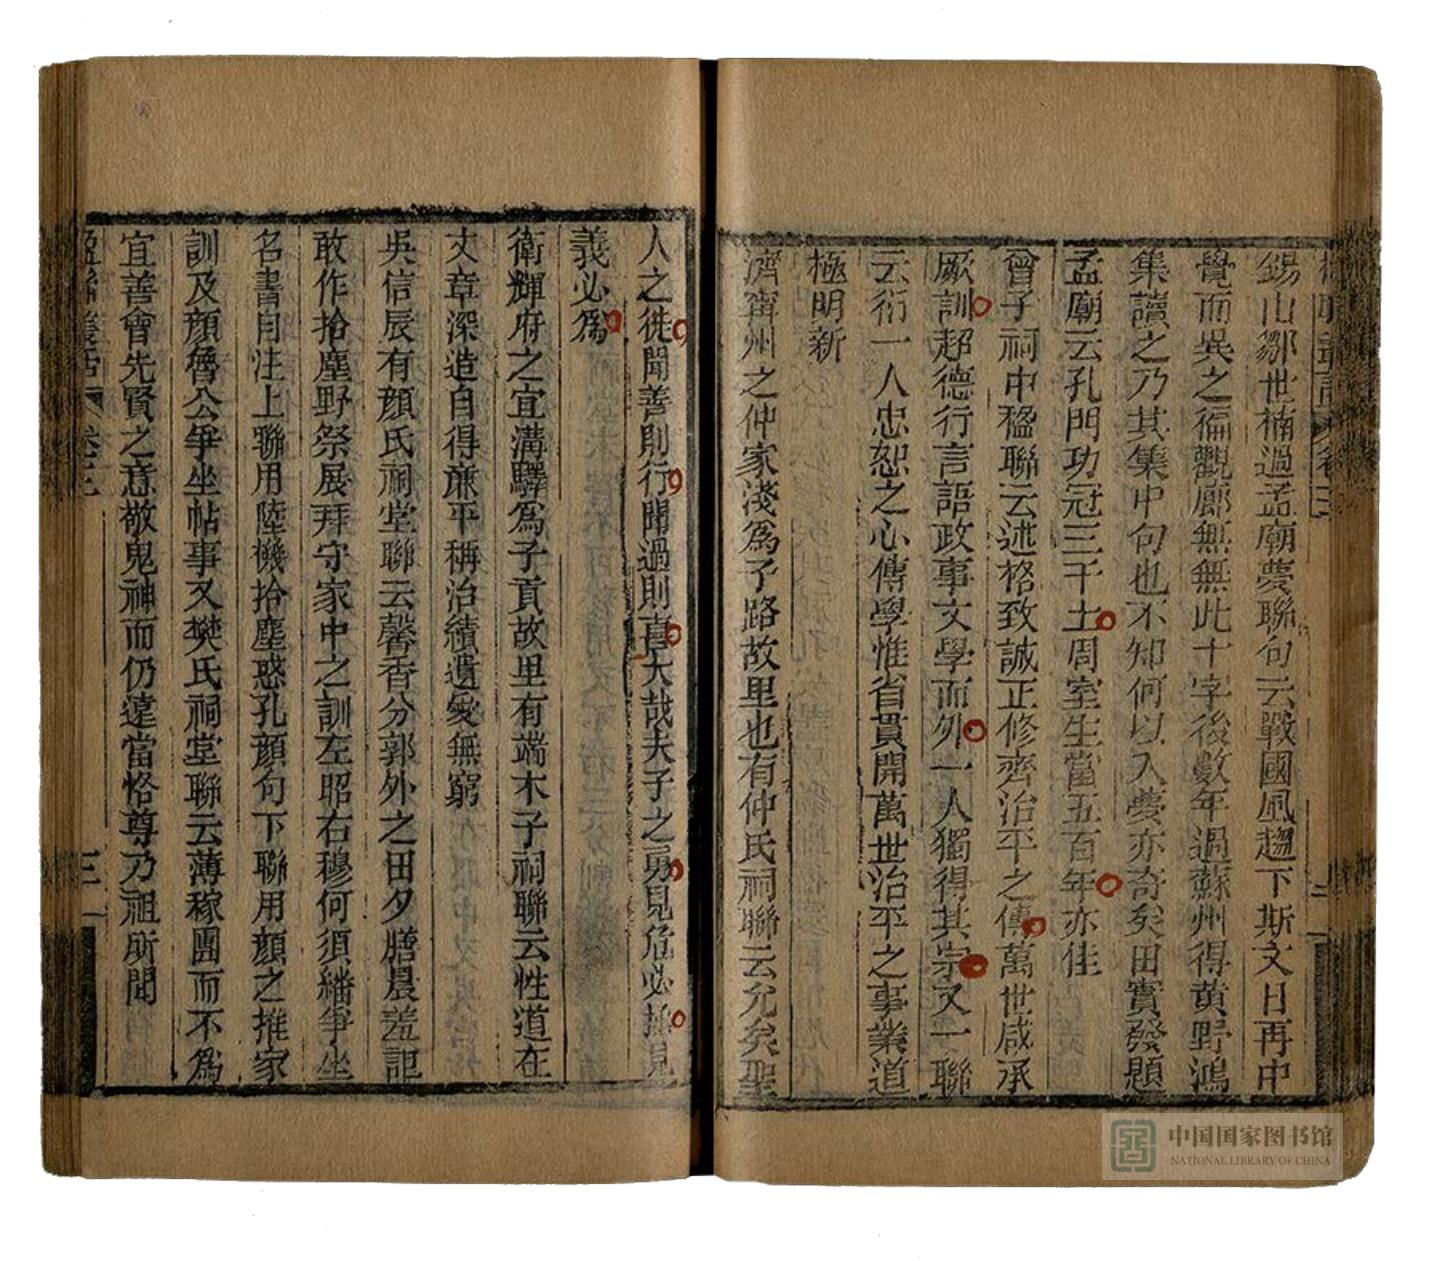 錫山鄒世楠過孟廟夢聯句云戰國風趨下斯文日再中
覺而異之徧觀廊無無此十字後數年過蘇州得黃野鴻
集讀之乃其集中句也不知何以入夢亦奇矣田實發題
孟廟云孔門功冠三千士周室生當五百年亦佳
曾子祠中楹聯云述格致誠正修齊治平之傳萬世咸承
厥訓超德行言語政事文學而外一人獨得其宗又一聯
云衍一人忠恕之心傳學惟省貫開萬世治平之事業道
極明新
濟甯州之仲家淺為子路故里也有仲氏祠聯云允矣聖
人之徒聞善則行聞過則喜大哉夫子之勇見危必拯見
義必為
衛輝府之宜溝驛為子貢故里有端木子祠聯云性道在
文章深造自得廉平稱治績遺愛無窮
吳信辰有顏氏祠堂聯云馨香分郭外之田夕膳晨羞詎
敢作拾塵野祭展拜守家中之訓左昭右穆何須繙爭坐
名書自注上聯用陸機拾塵惑孔顏句下聯用顏之推家
訓及顏魯公爭坐帖事又樊氏祠堂聯云薄稼圃而不為
宜善會先賢之意敬鬼神而仍遠當恪尊乃祖所聞
楹聯叢話 卷三
三
中国国家图书馆
NATIONAL LIBRARY OF CHINA